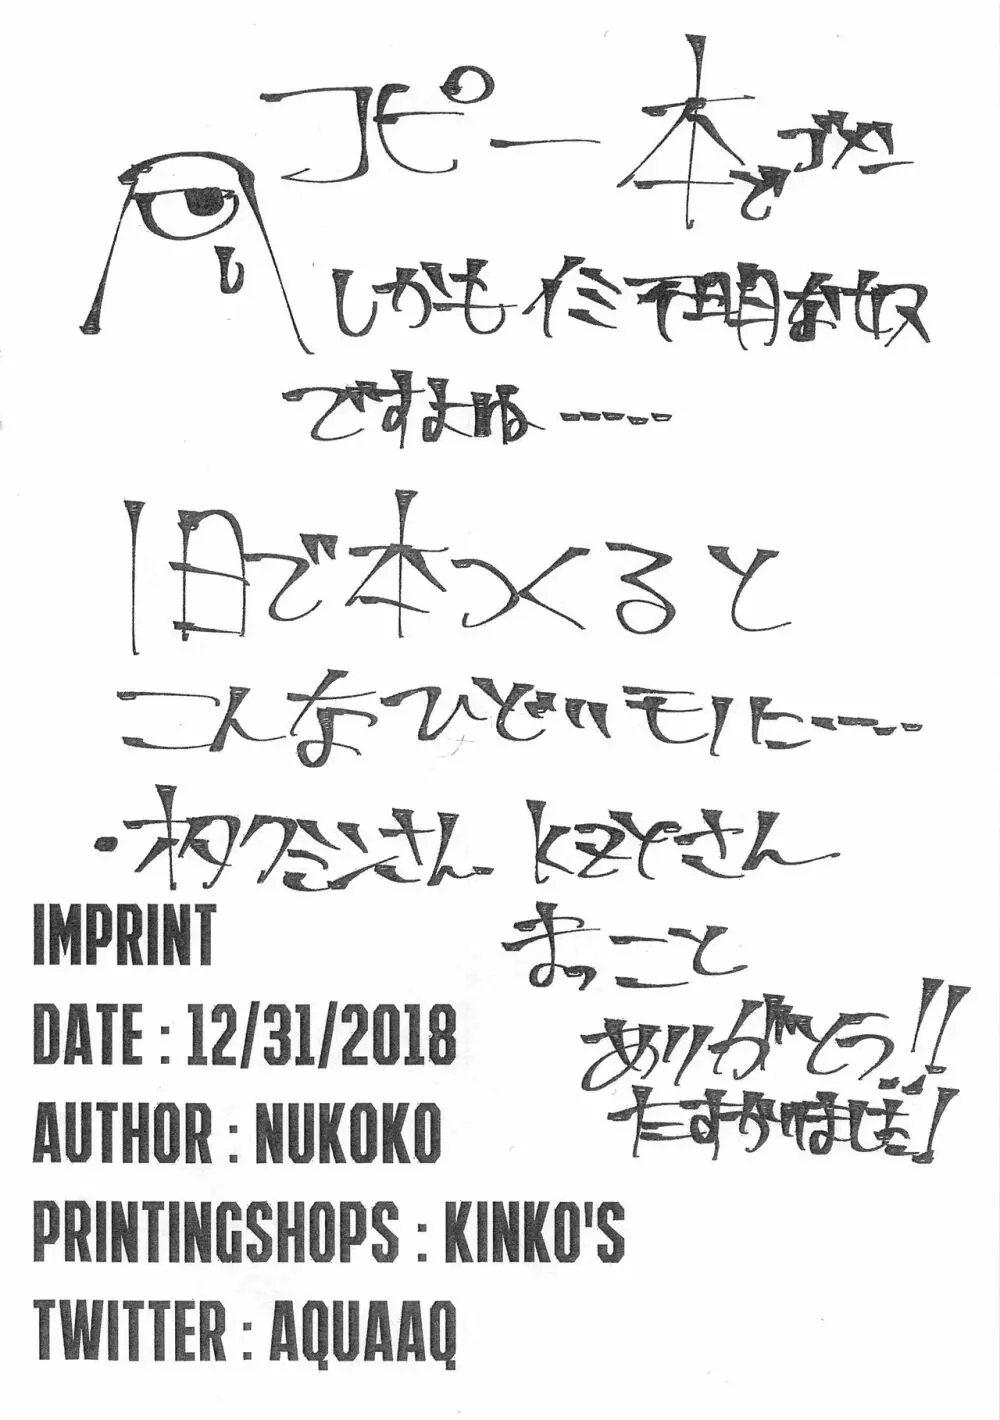 コピー本でゴメン
しかも イミ不明な奴
ですよね-----
1日で本つくると
こんなひどいモノに-----
タクミンさん KZYさん
まっこと
ありがとう!!
たすかりました!
IMPRINT
DATE : 12/31/2018
AUTHOR : NUKOKO
PRINTINGSHOPS : KINKO'S
TWITTER : AQUAAQ